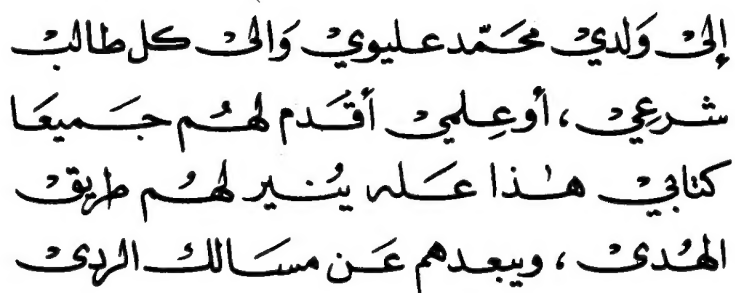 إلى وَلدي محَمّد عليوي وَالى كل طالب
شرعِي ، أو عِلمي أقَدم لهُم جَميعَا
كتابي هٰذا عَله يُنير لهُم طريق
الهُدى ، ويبعدهم عَن مسَالك الردى